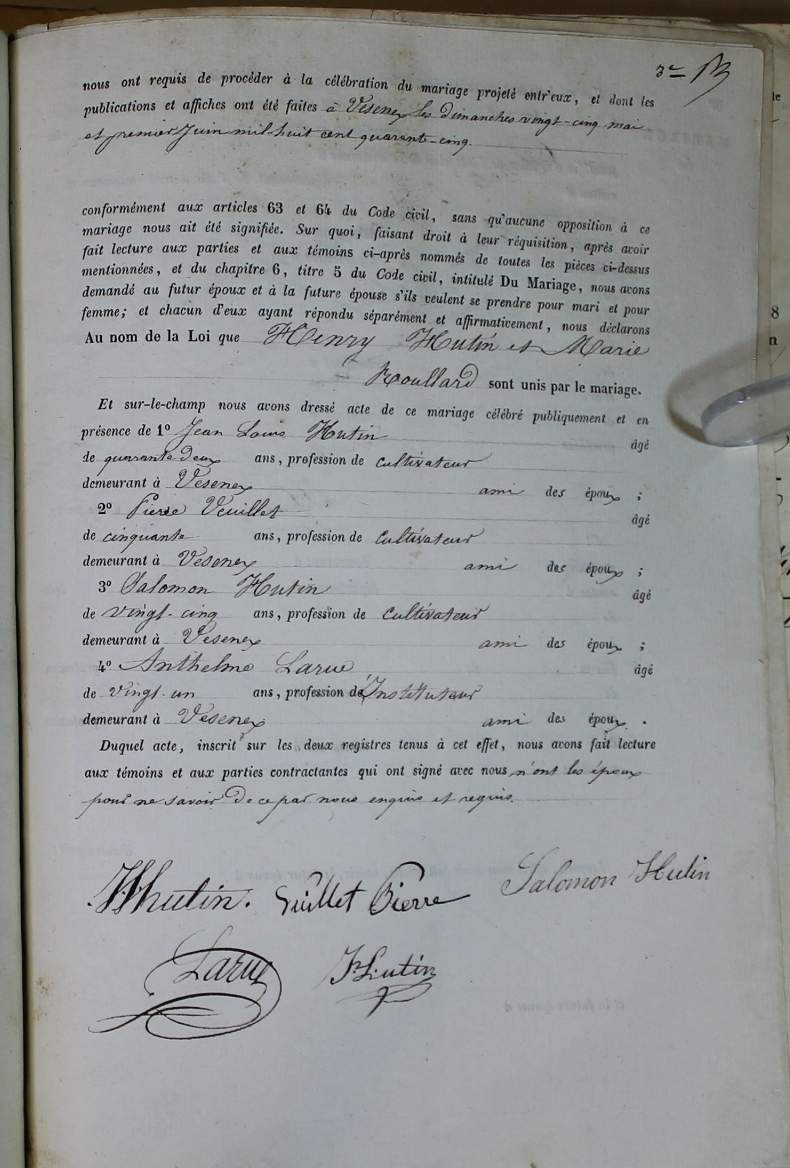 3e
nous ont requis de procéder à la célébration du mariage projeté entr'eux, et dont les
publications et affiches ont été faites à Vesenex les dimanches vingt-cinq mai
et premier Juin mil-huit cent quarante-cinq.
conformément aux articles 63 et 64 du Code civil, sans qu'aucune opposition à ce
mariage nous ait été signifiée. Sur quoi, faisant droit à leur réquisition, après avoir
fait lecture aux parties et aux témoins ci-après nommés de toutes les pièces ci-dessus
mentionnées, et du chapitre 6, titre 5 du Code civil, intitulé Du Mariage, nous avons
demandé au futur époux et à la future épouse s'ils veulent se prendre pour mari et pour
femme; et chacun d'eux ayant répondu séparément et affirmativement, nous déclarons
Au nom de la Loi que Henry Hutin et Marie
Roullard sont unis par le mariage.
Et sur-le-champ nous avons dressé acte de ce mariage célébré publiquement et en
présence de 1º Jean Louis Hutin âgé
de quarante deux ans, profession de cultivateur
demeurant à Vesenex ami des époux ;
2º Pierre Veuillet âgé
de cinquante ans, profession de cultivateur
demeurant à Vesenex ami des époux ;
3º Salomon Hutin âgé
de vingt-cinq ans, profession de cultivateur
demeurant à Vesenex ami des époux ;
4º Anthelme Larue âgé
de vingt-un ans, profession de Instituteur
demeurant à Vesenex ami des époux .
Duquel acte, inscrit sur les deux registres tenus à cet effet, nous avons fait lecture
aux témoins et aux parties contractantes qui ont signé avec nous n'ont les époux
pour ne savoir de ce par nous enquis et requis.
hutin. Vuillet Pierre Salomon Hutin
Larue Hutin